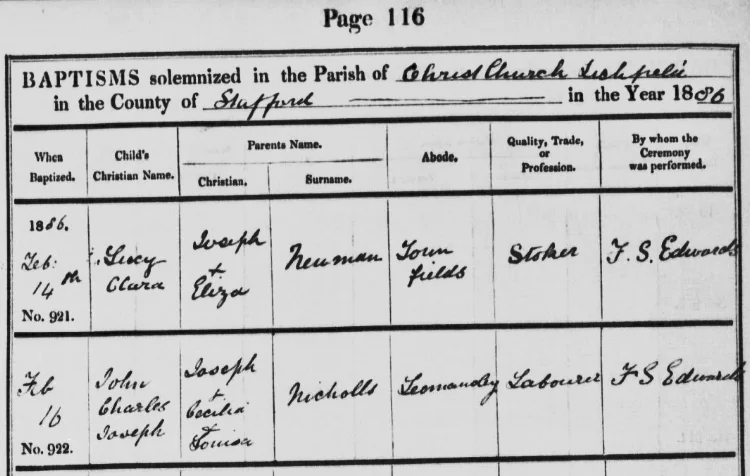 Page 116
BAPTISMS solemnized in the Parish of Christ Church Lichfield
in the County of Stafford in the Year 1886
When Baptized.
Child's Christian Name.
Parents Name.
Christian.
Surname.
Abode.
Quality, Trade, or Profession.
By whom the Ceremony was performed.
1886.
Feb: 14th
No. 921.
Lucy Clara
Joseph + Eliza
Neuman
Town fields
Stoker
F. S. Edwards
Feb 16
No. 922.
John Charles Joseph
Joseph + Cecilia + Louisa
Nicholls
Leomansley
Labourer
F S Edwards